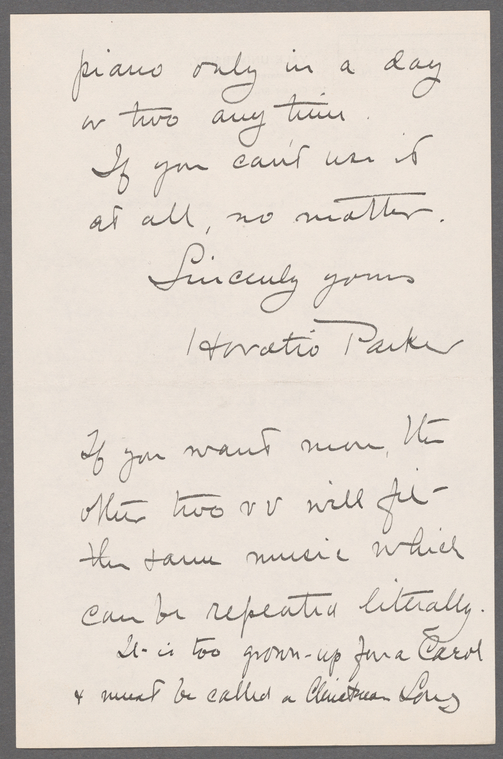 piano only in a day
or two any time.
If you can't use it
at all, no matter.
Sincerely yours
Horatio Parker
If you want more, the
other two vv will fit
the same music which
can be repeated literally.
It is too grown-up for a Carol
& must be called a Christmas Song